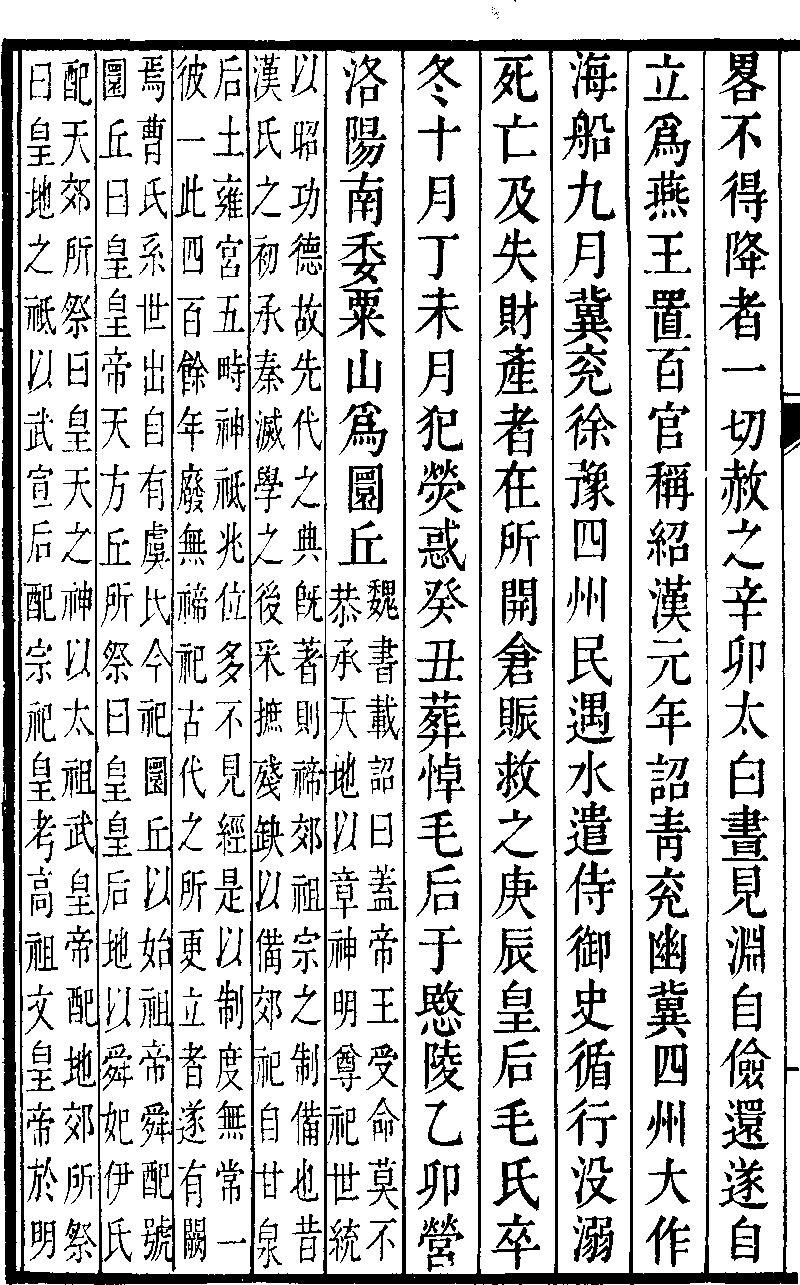 畧不得降者一切赦之辛卯太白晝見淵自儉還遂自
立爲燕王置百官稱紹漢元年詔靑兖幽冀四州大作
海船九月冀兖徐豫四州民遇水遣侍御史循行没溺
死亡及失財產者在所開倉賑救之庚辰皇后毛氏卒
冬十月丁未月犯熒惑癸丑葬悼毛后于愍陵乙卯營
洛陽南委粟山爲圜丘
魏書載詔曰蓋帝王受命莫不
恭承天地以章神明尊祀世統
以昭功德故先代之典旣著則禘郊祖宗之制備也昔
漢氏之初承秦滅學之後采摭殘缺以備郊祀自甘泉
后土雍宮五畤神祇兆位多不見經是以制度無常一
彼一此四百餘年廢無禘祀古代之所更立者遂有闕
焉曹氏系世出自有虞氏今祀圜丘以始祖帝舜配號
圜丘曰皇皇帝天方丘所祭曰皇皇后地以舜妃伊氏
配天郊所祭曰皇天之神以太祖武皇帝配地郊所祭
曰皇地之祇以武宣后配宗祀皇考高祖文皇帝於明